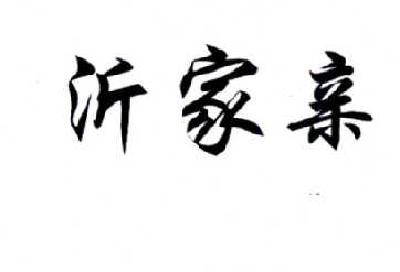 沂家亲